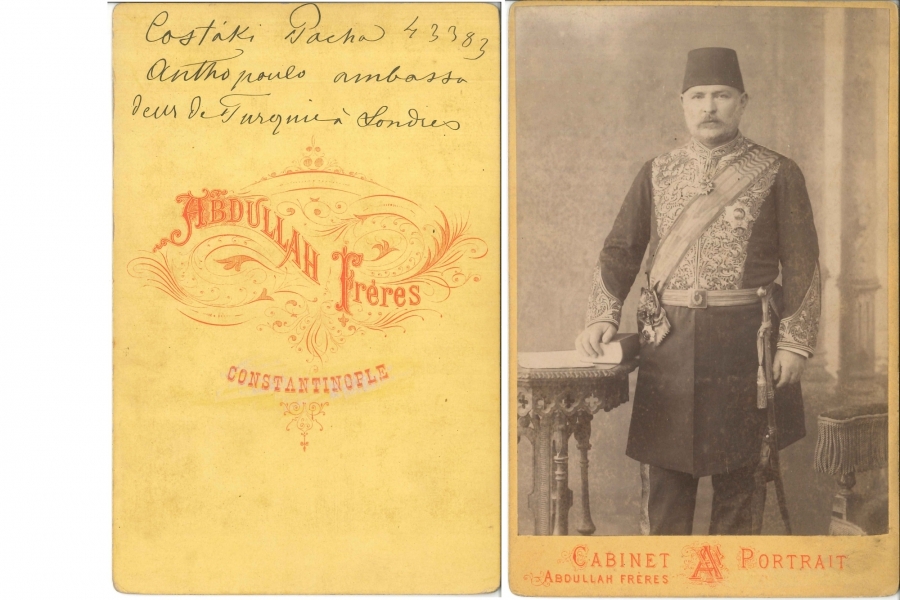 Costáki Pacha 43383
Anthopoulo ambassa
deur de Turquie à Londres
ABDULLAH
Fréres
CONSTANTINOPLE
CABINET AA PORTRAIT
ABDULLAH FRÉRES